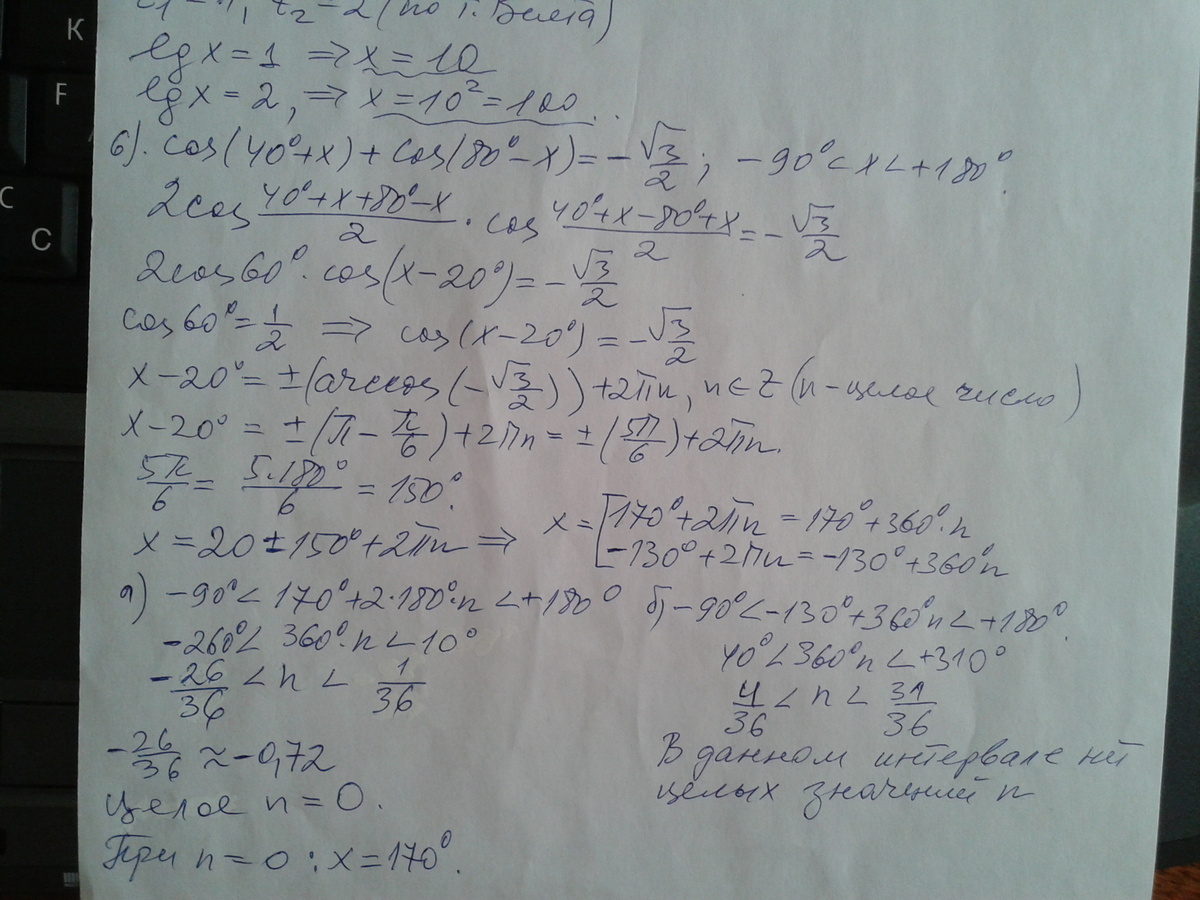 K
F
C
C
t₁ = 1, t₂ = 2 (по т. Виета)
lg x = 1 ⇒ x = 10
lg x = 2, ⇒ x = 10² = 100.
6). cos(40°+x) + cos(80°-x) = -√3/2; -90° < x < +180°.
2cos (40°+x+80°-x)/2 · cos (40°+x-80°+x)/2 = -√3/2
2cos60° · cos(x-20°) = -√3/2
cos60° = 1/2 ⇒ cos(x-20°) = -√3/2
x-20° = ±(arccos(-√3/2)) + 2πn, n∈Z (n-целое число)
x-20° = ±(π - π/6) + 2πn = ±(5π/6) + 2πn.
5π/6 = 5·180°/6 = 150°.
x = 20 ± 150° + 2πn ⇒ x = [170° + 2πn = 170° + 360°·n
-130° + 2πn = -130° + 360°n
а) -90° < 170° + 2·180°·n < +180°
-260° < 360°·n < 10°
-26/36 < n < 1/36
-26/36 ≈ -0,72
Целое n = 0.
При n = 0 : x = 170°.
б) -90° < -130° + 360°n < +180°.
40° < 360°n < +310°
4/36 < n < 31/36
В данном интервале нет
целых значений n